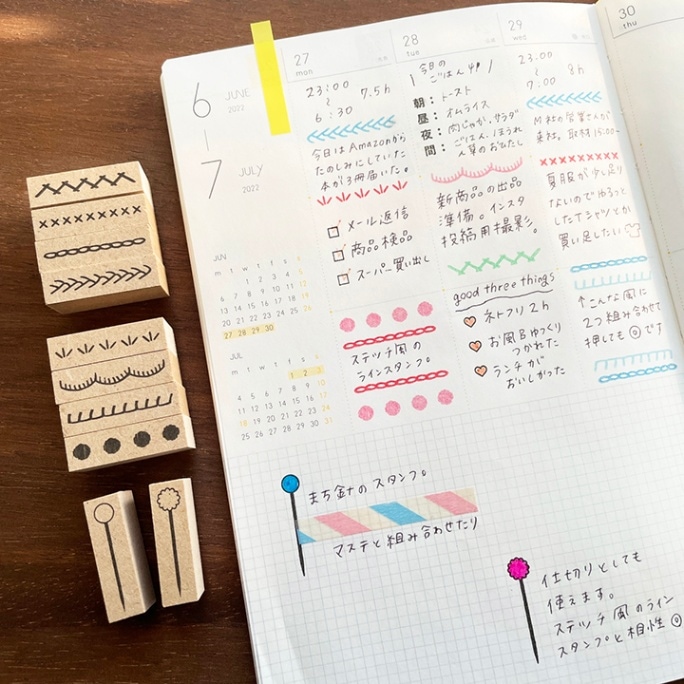 6
JUNE
2022
7
JULY
2022
27
mon
28
tue
29
wed
30
thu
23:00
〜
6:30
7.5h
今日はAmazonから
たのしみにしていた
本が3冊届いた。
メール返信
商品検品
スーパー買い出し
ステッチ風の
ラインスタンプ。
今日の
ごはん
朝：トースト
昼：オムライス
夜：肉じゃが、サラダ
間：ごはん、ほうれ
ん草のおひたし
新商品の出品
準備。インスタ
投稿用撮影。
good three things
ネトフリ2h
お風呂ゆっくり
つかれた
ランチが
おいしかった
23:00
〜
7:00
8h
M社の営業さんが
来社。取材15:00~
夏服が少し足り
ないのでゆるっと
したTシャツとか
買い足したい
↑こんな風に
2つ組み合わせて
押しても◎です
JUN
m t w t f s s
1 2 3 4 5
6 7 8 9 10 11 12
13 14 15 16 17 18 19
20 21 22 23 24 25 26
27 28 29 30
JUL
m t w t f s s
1 2 3
4 5 6 7 8 9 10
11 12 13 14 15 16 17
18 19 20 21 22 23 24
25 26 27 28 29 30 31
まち針のスタンプ。
マステと組み合わせたり
仕切りとしても
使えます。
ステッチ風のライン
スタンプと相性◎